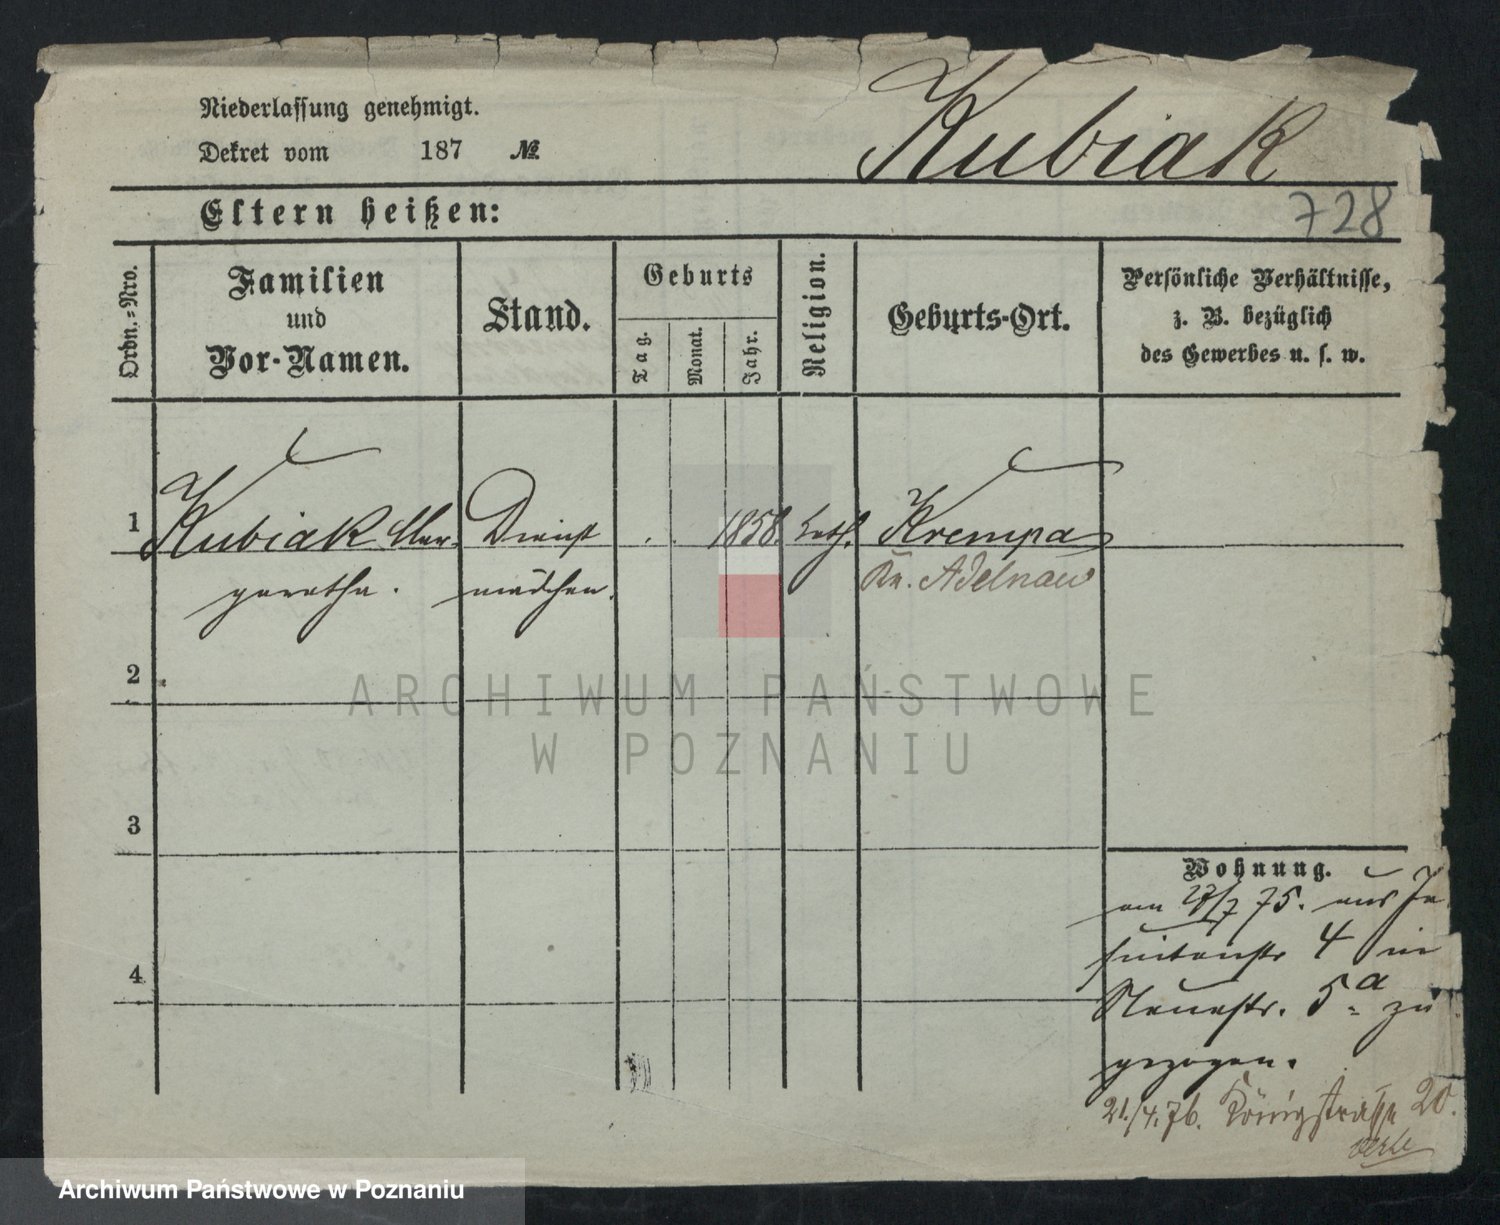 Niederlassung genehmigt.
Dekret vom 187 №
Kubiak
728
Eltern heißen:
Ordn.=Nro.
Familien
und
Vor-Namen.
Stand.
Geburts
Tag.
Monat.
Jahr.
Religion.
Geburts-Ort.
Persönliche Verhältnisse,
z. B. bezüglich
des Gewerbes u. s. w.
1 Kubiak Mar- Dienst . . 1858. kath. Krempa
garetha. mädchen. Kr. Adelnau
2
3
4
Wohnung.
am 27/7 75. aus Je
suitenstr 4 in
Neuestr. 5a zu
gezogen.
21./4.76. Königstraße 20.
ARCHIWUM PAŃSTWOWE
W POZNANIU
Archiwum Państwowe w Poznaniu